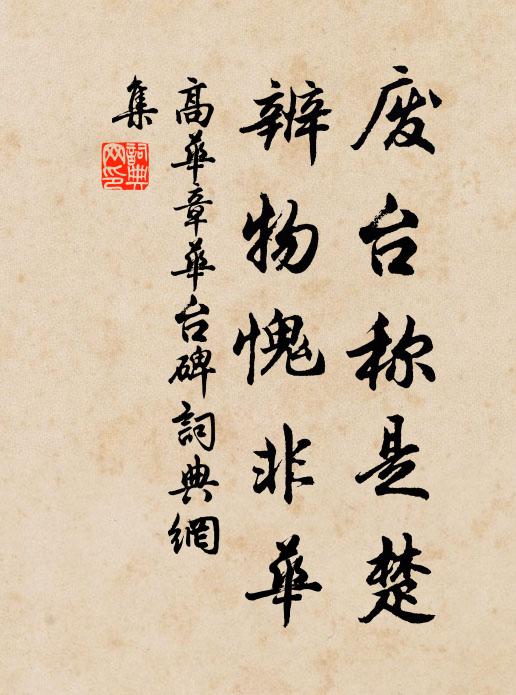 废台称是楚
辨物愧非华
高华章华台碑词典網
集
詞典
网印